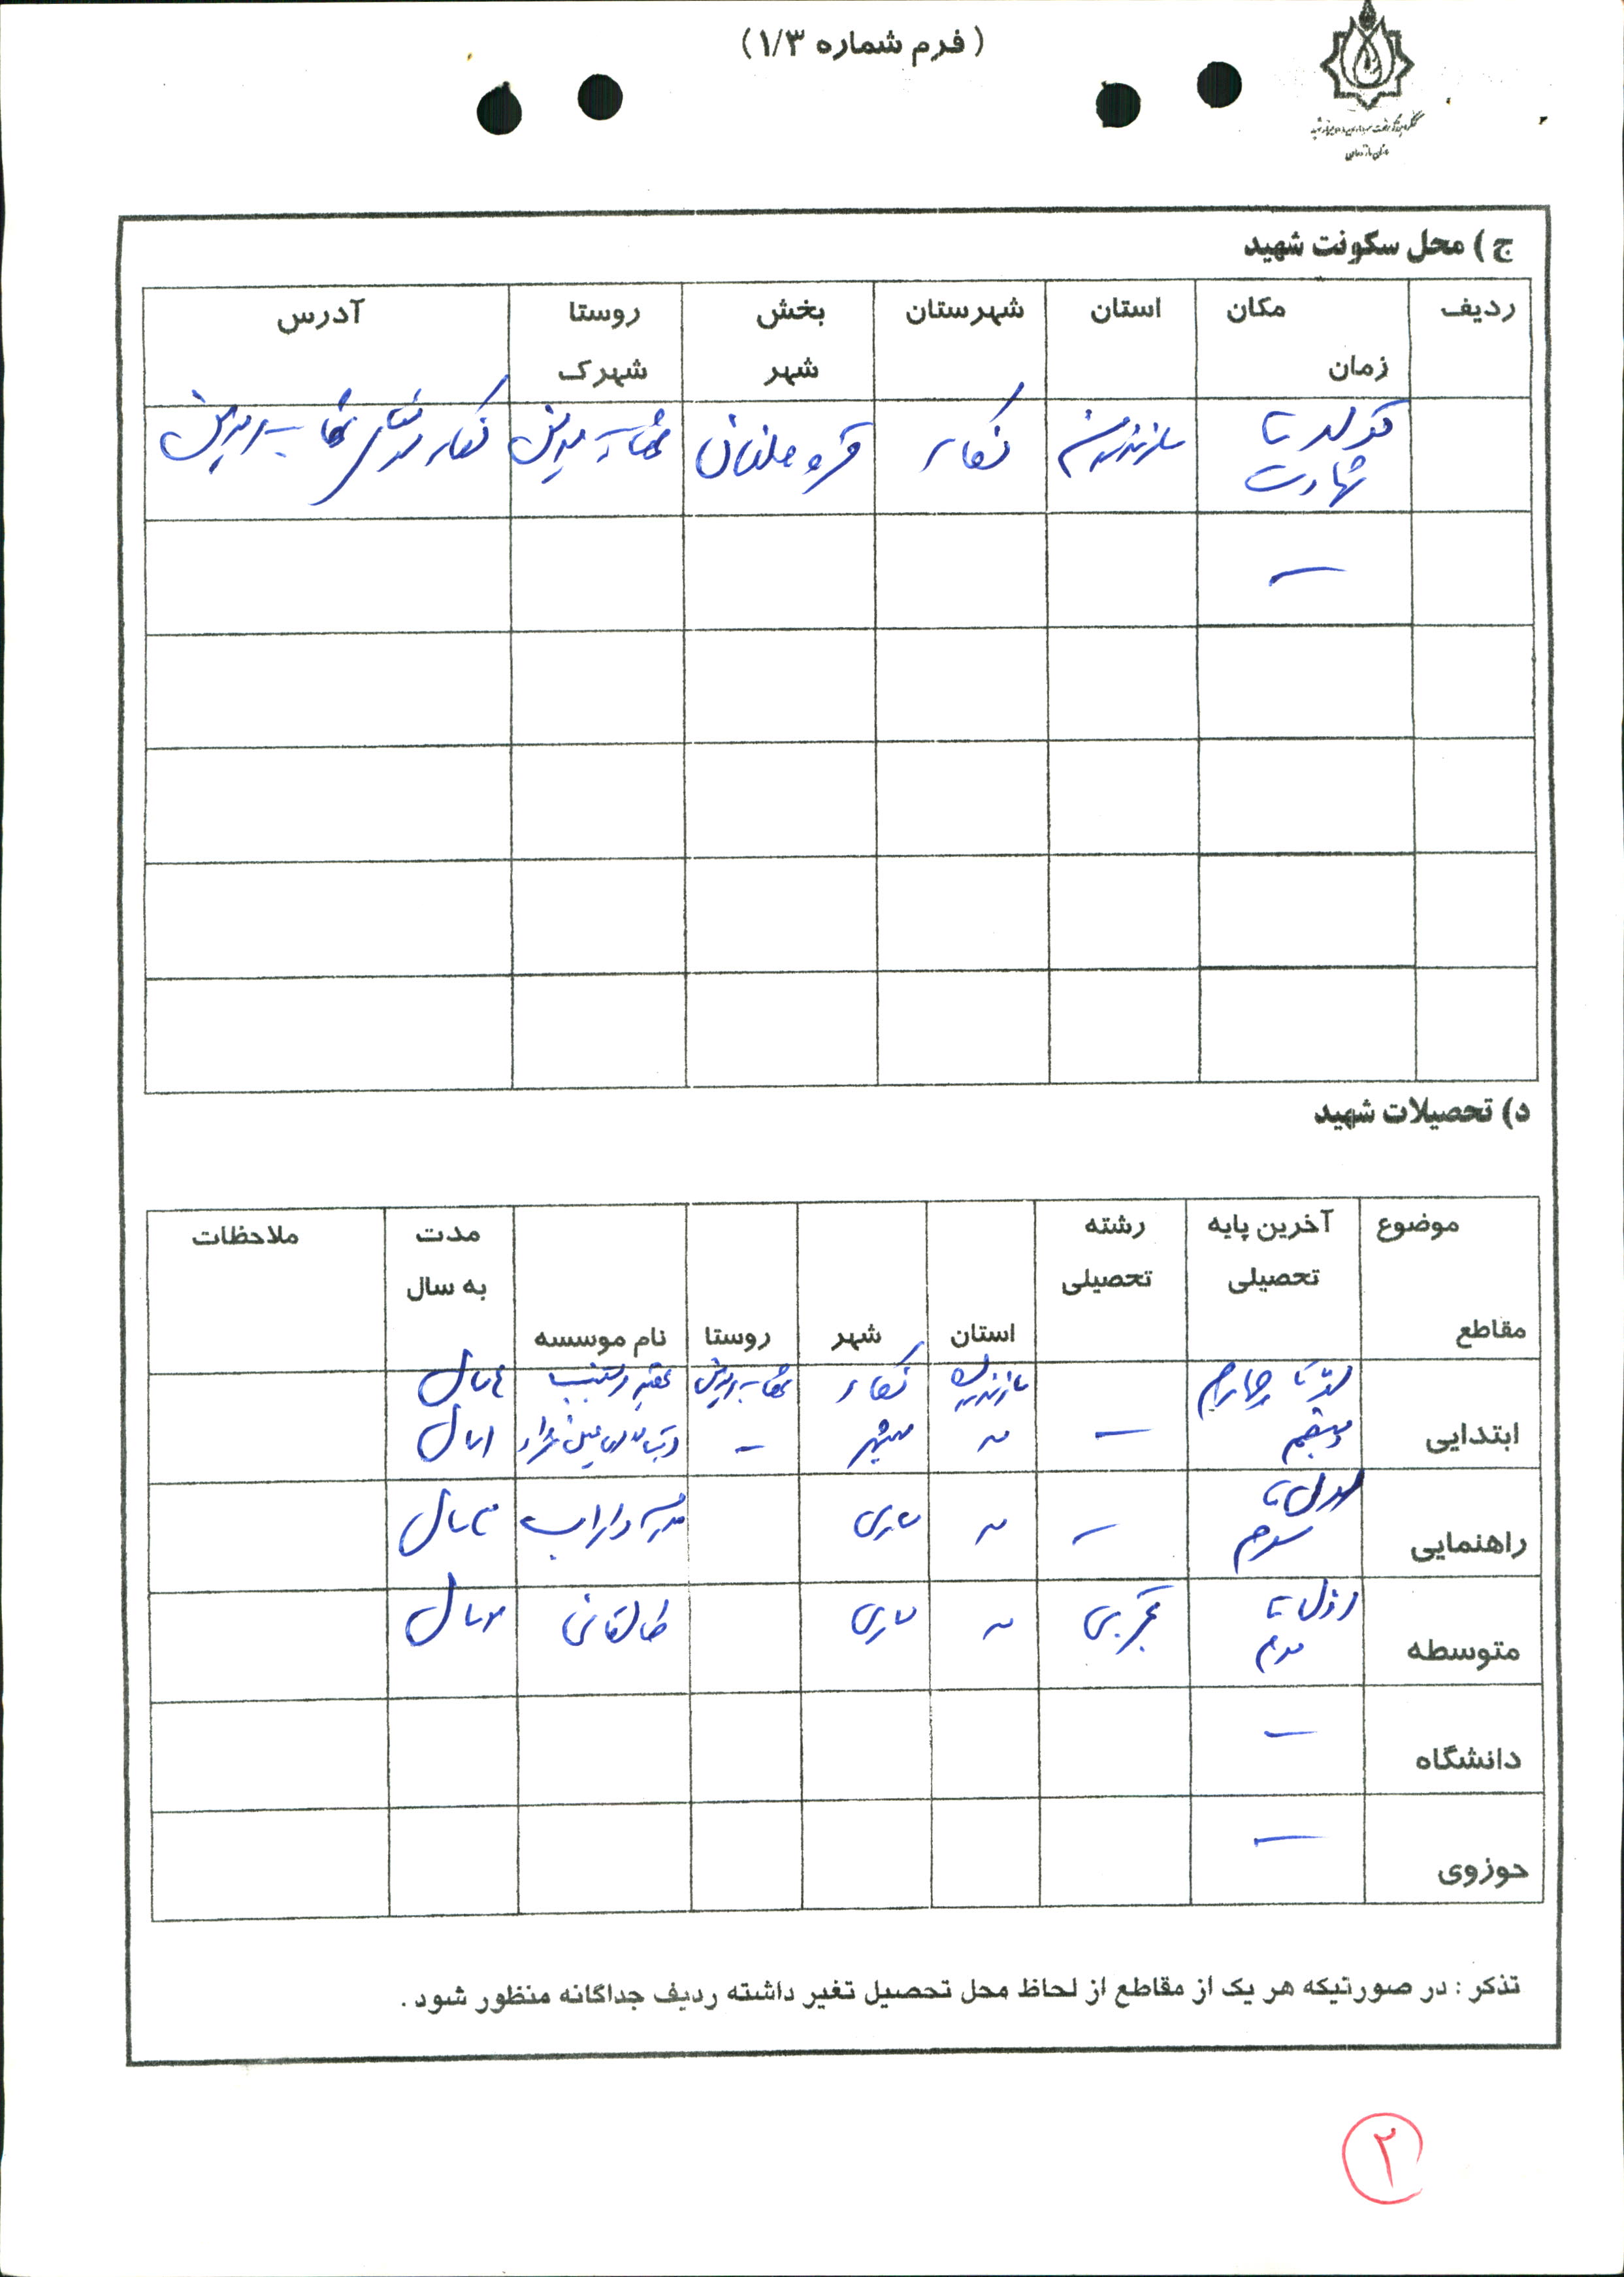 ( فرم شماره ۱/۳ )
ج ) محل سکونت شهید
ردیف مکان زمان استان شهرستان بخش شهر روستا شهرک آدرس
تولد تا شهادت مازندران نکاء قره طغان
نکاء روستای
د) تحصیلات شهید
موضوع مقاطع آخرین پایه تحصیلی رشته تحصیلی استان شهر روستا نام موسسه مدت به سال ملاحظات
ابتدایی اول تا چهارم مازندران نکاء ۴ سال
پنجم — " بهشهر - ۱ سال
راهنمایی اول تا سوم — " ساری مدرسه داراب ۳ سال
متوسطه اول تا دوم تجربی " ساری طالقانی ۲ سال
دانشگاه —
حوزوی —
تذکر : در صورتیکه هر یک از مقاطع از لحاظ محل تحصیل تغیر داشته ردیف جداگانه منظور شود .
۲